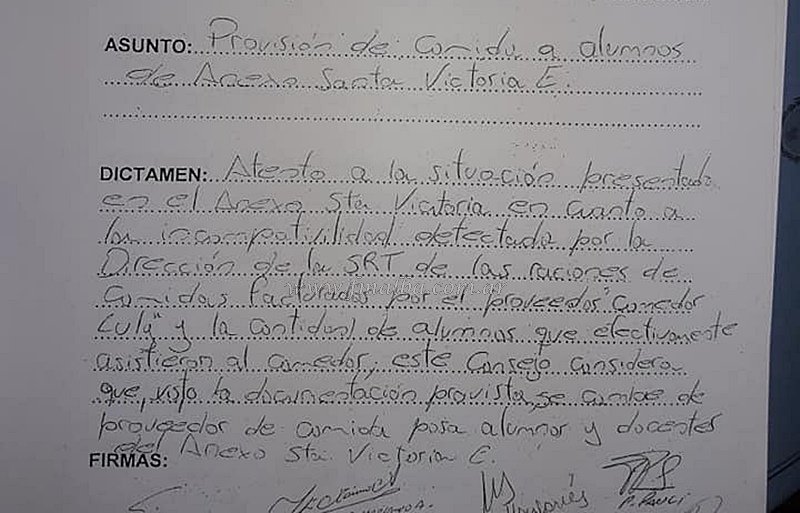 ASUNTO: Provisión de comida a alumnos
de Anexo Santa Victoria E.
DICTAMEN: Atento a la situación presentada
en el Anexo Sta Victoria en cuanto a
la incompativilidad detectada por la
Dirección de la SRT de las raciones de
comidas facturadas por el proveedor "Comedor
Luly" y la cantidad de alumnos que efectivamente
asistieron al comedor, este Consejo considera
que, visto la documentación provista, se cambie de
proveedor de comida para alumnos y docentes
del Anexo Sta. Victoria E.
FIRMAS: